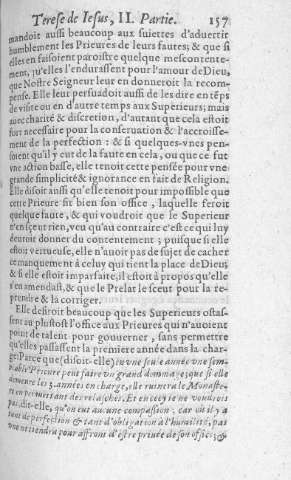 Terese de Iesus, II. Partie. 157
mandoit aussi beaucoup aux suiettes d'aduertir
humblement les Prieures de leurs fautes; & que si
elles en faisoient paroistre quelque mescontente-
ment, qu'elles l'endurassent pour l'amour de Dieu,
que Nostre Seigneur leur en donneroit la recom-
pense. Elle leur persuadoit aussi de les dire en tẽps
de visite ou en d'autre temps aux Superieurs; mais
auec charité & discretion, d'autant que cela estoit
fort necessaire pour la conseruation & l'accroisse-
ment de la perfection: & si quelques-vnes pen-
soient qu'il y eut de la faute en cela, ou que ce fut
vne action basse, elle tenoit cette pensée pour vne
grande simplicité & ignorance en fait de Religion.
Elle disoit aussi qu'elle tenoit pour impossible que
cette Prieure fit bien son office, laquelle feroit
quelque faute, & qui voudroit que le Superieur
n'en sçeut rien, veu qu'au contraire c'est ce qui luy
deuroit donner du contentement; puisque si elle
estoit vertueuse, elle n'auoit pas de sujet de cacher
ce manquement à celuy qui tient la place de Dieu;
& si elle estoit imparfaite, il estoit à propos qu'elle
s'en amendast, & que le Prelat le sceut pour la re-
prendre & la corriger.
Elle desiroit beaucoup que les Superieurs ostas-
sent au plustost l'office aux Prieures qui n'auoient
point de talent pour gouuerner, sans permettre
qu'elles passassent la premiere année dans la char-
ge: Parce que (disoit-elle) en vne seule année vne sem-
blable Prieure peut faire vn grand dommage; que si elle
demeure les 3. années en charge, elle ruinera le Monaste-
re en permettant des relasches. Et en cecy ie ne voudrois
pas, dit-elle, qu'on eut aucune compassion: car où il y a
tant de perfection & tant d'obligation à l'humilité, pas
vne ne tiendra pour affront d'estre priuée de son office; &